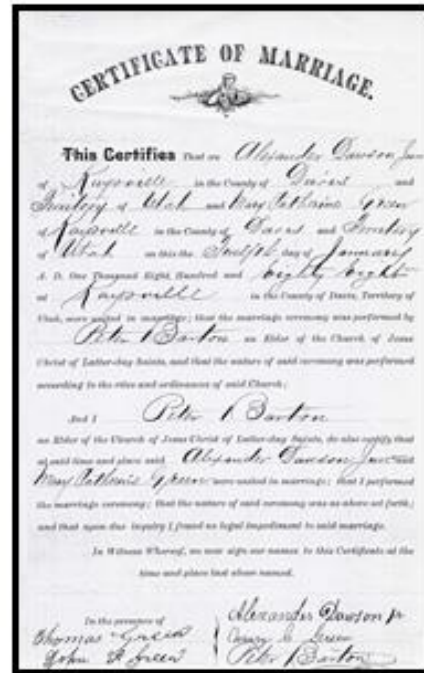 CERTIFICATE OF MARRIAGE.
This Certifies That on Alexander Dawson Jun
of Kaysville in the County of Davis and
Territory of Utah and Mary Catharine Green
of Kaysville in the County of Davis and Territory
of Utah on this the Twelfth day of January
A. D. One Thousand Eight Hundred and Eighty Eight
at Kaysville in the County of Davis, Territory of
Utah, were united in marriage; that the marriage ceremony was performed by
Peter Barton an Elder of the Church of Jesus
Christ of Latter-day Saints, and that the nature of said ceremony was performed
according to the rites and ordinances of said Church;
And I Peter Barton
an Elder of the Church of Jesus Christ of Latter-day Saints, do also certify, that
at said time and place said Alexander Dawson Jun and
Mary Catharine Green were united in marriage; that I performed
the marriage ceremony; that the nature of said ceremony was as above set forth;
and that upon due inquiry I found no legal impediment to said marriage.
In Witness Whereof, we now sign our names to this Certificate at the
time and place last above named.
In the presence of
Thomas Green
John Green
Alexander Dawson Jr
Mary C Green
Peter Barton